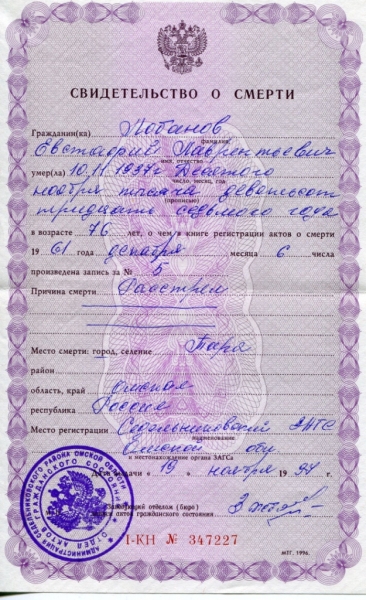 СВИДЕТЕЛЬСТВО О СМЕРТИ
Гражданин(ка) Лобанов
фамилия,
Евстафий Лаврентьевич
имя, отчество
умер(ла) 10.11.1937г. Десятого
число, месяц, год
ноября тысяча девятьсот
(прописью)
тридцать седьмого года
в возрасте 76 лет, о чем в книге регистрации актов о смерти
19 61 года декабря месяца 6 числа
произведена запись за № 5
Причина смерти Расстрел
Место смерти: город, селение Тара
район
область, край Омская
республика Россия
Место регистрации Седельниковский ЗАГС
наименование
Омской обл
и местонахождение органа ЗАГСа
Дата выдачи «19 ноября 1997
Заведующий отделом (бюро)
актов гражданского состояния
АДМИНИСТРАЦИЯ СЕДЕЛЬНИКОВСКОГО РАЙОНА ОМСКОЙ ОБЛАСТИ
ОТДЕЛ АКТОВ ГРАЖДАНСКОГО СОСТОЯНИЯ
I-КН № 347227
МТГ. 1996.